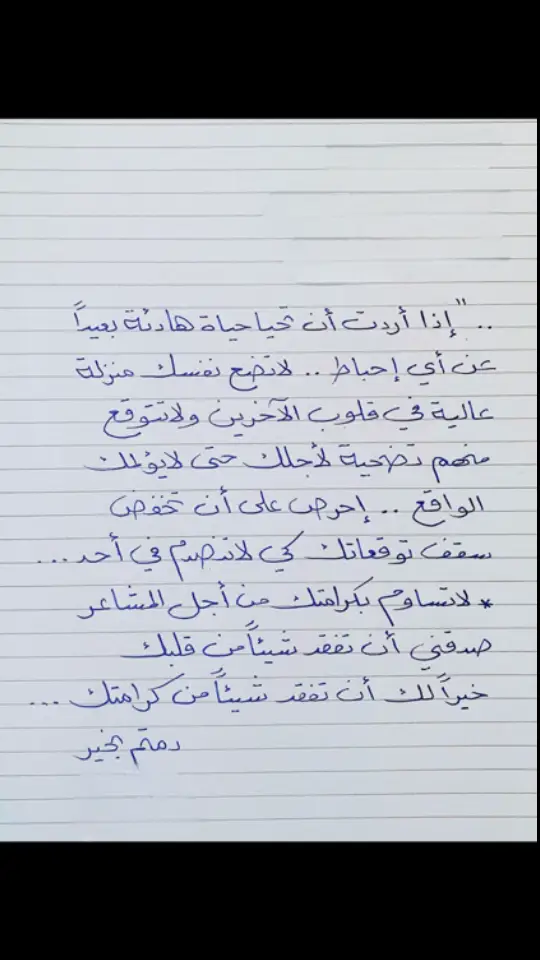 .. "إذا أردت أن تحيا حياة هادئة بعيداً
عن أي إحباط .. لاتضع نفسك منزلة
عالية في قلوب الآخرين ولاتتوقع
منهم تضحية لأجلك حتى لايؤلمك
الواقع .. إحرص على أن تخفض
سقف توقعاتك كي لاتنصدم في أحد ...
* لاتساوم بكرامتك من أجل المشاعر
صدقني أن تفقد شيئاً من قلبك
خيراً لك أن تفقد شيئاً من كرامتك ...
دمتم بخير